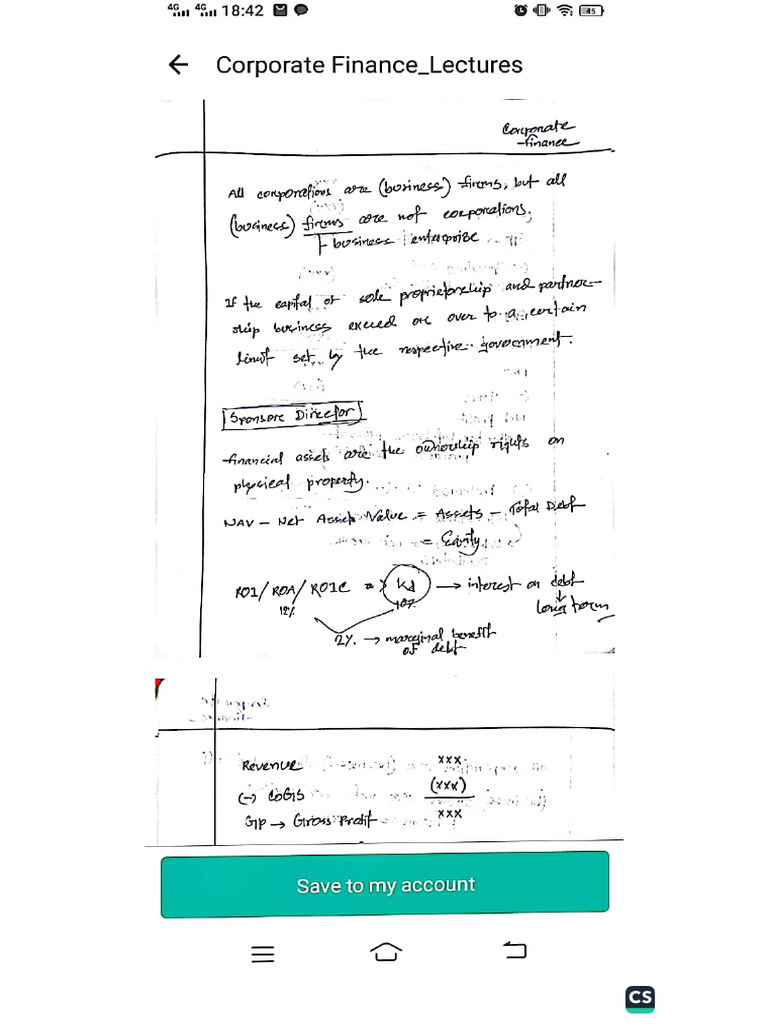 4G 4G 18:42 45
Corporate Finance_Lectures
Corporate
finance
All corporations are (business) firms, but all
(business) firms are not corporations.
business enterprise
If the capital of sole proprietorship and partner-
ship business exceed or over to a certain
limit set by the respective government.
Sponsore Director
financial assets are the ownership rights on
physical property.
NAV - Net Assets Value = Assets - Total Debt
= Equity
ROI/ROA/ROIC => Kd → interest on debt
12% 10% ↓ long term
2% → marginal benefit
of debt
Revenue xxx
(-) COGS (xxx)
GP → Gross Profit xxx
Save to my account
CS